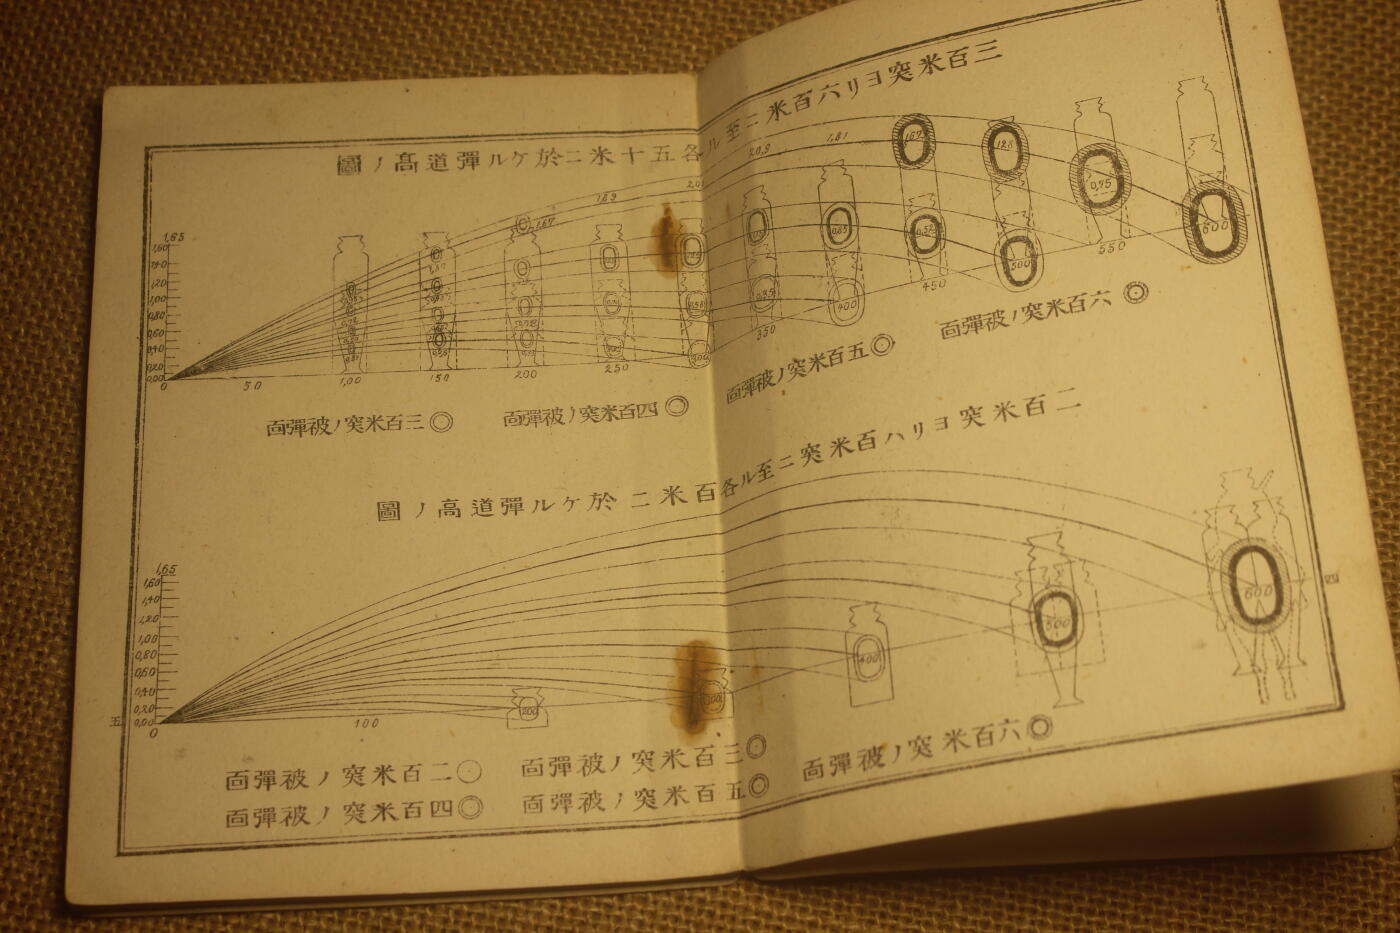 三百米突ヨリ六百米ニ至ル各五十米ニ於ケル彈道高ノ圖
1,65
1,60
1,40
1,20
1,00
0,80
0,60
0,40
0,20
0,00
0
50
1,00
150
200
250
350
450
550
1,67
1,89
2,0,9
1,81
167
128
0,75
0,85
400
500
600
三百米突ノ被彈面
四百米突ノ被彈面
五百米突ノ被彈面
六百米突ノ被彈面
二百米突ヨリ八百米突ニ至ル各百米ニ於ケル彈道高ノ圖
1,65
1,60
1,40
1,20
1,00
0,80
0,60
0,40
0,20
0,00
0
100
200
300
400
500
600
二百米突ノ被彈面
三百米突ノ被彈面
四百米突ノ被彈面
五百米突ノ被彈面
六百米突ノ被彈面
四
五